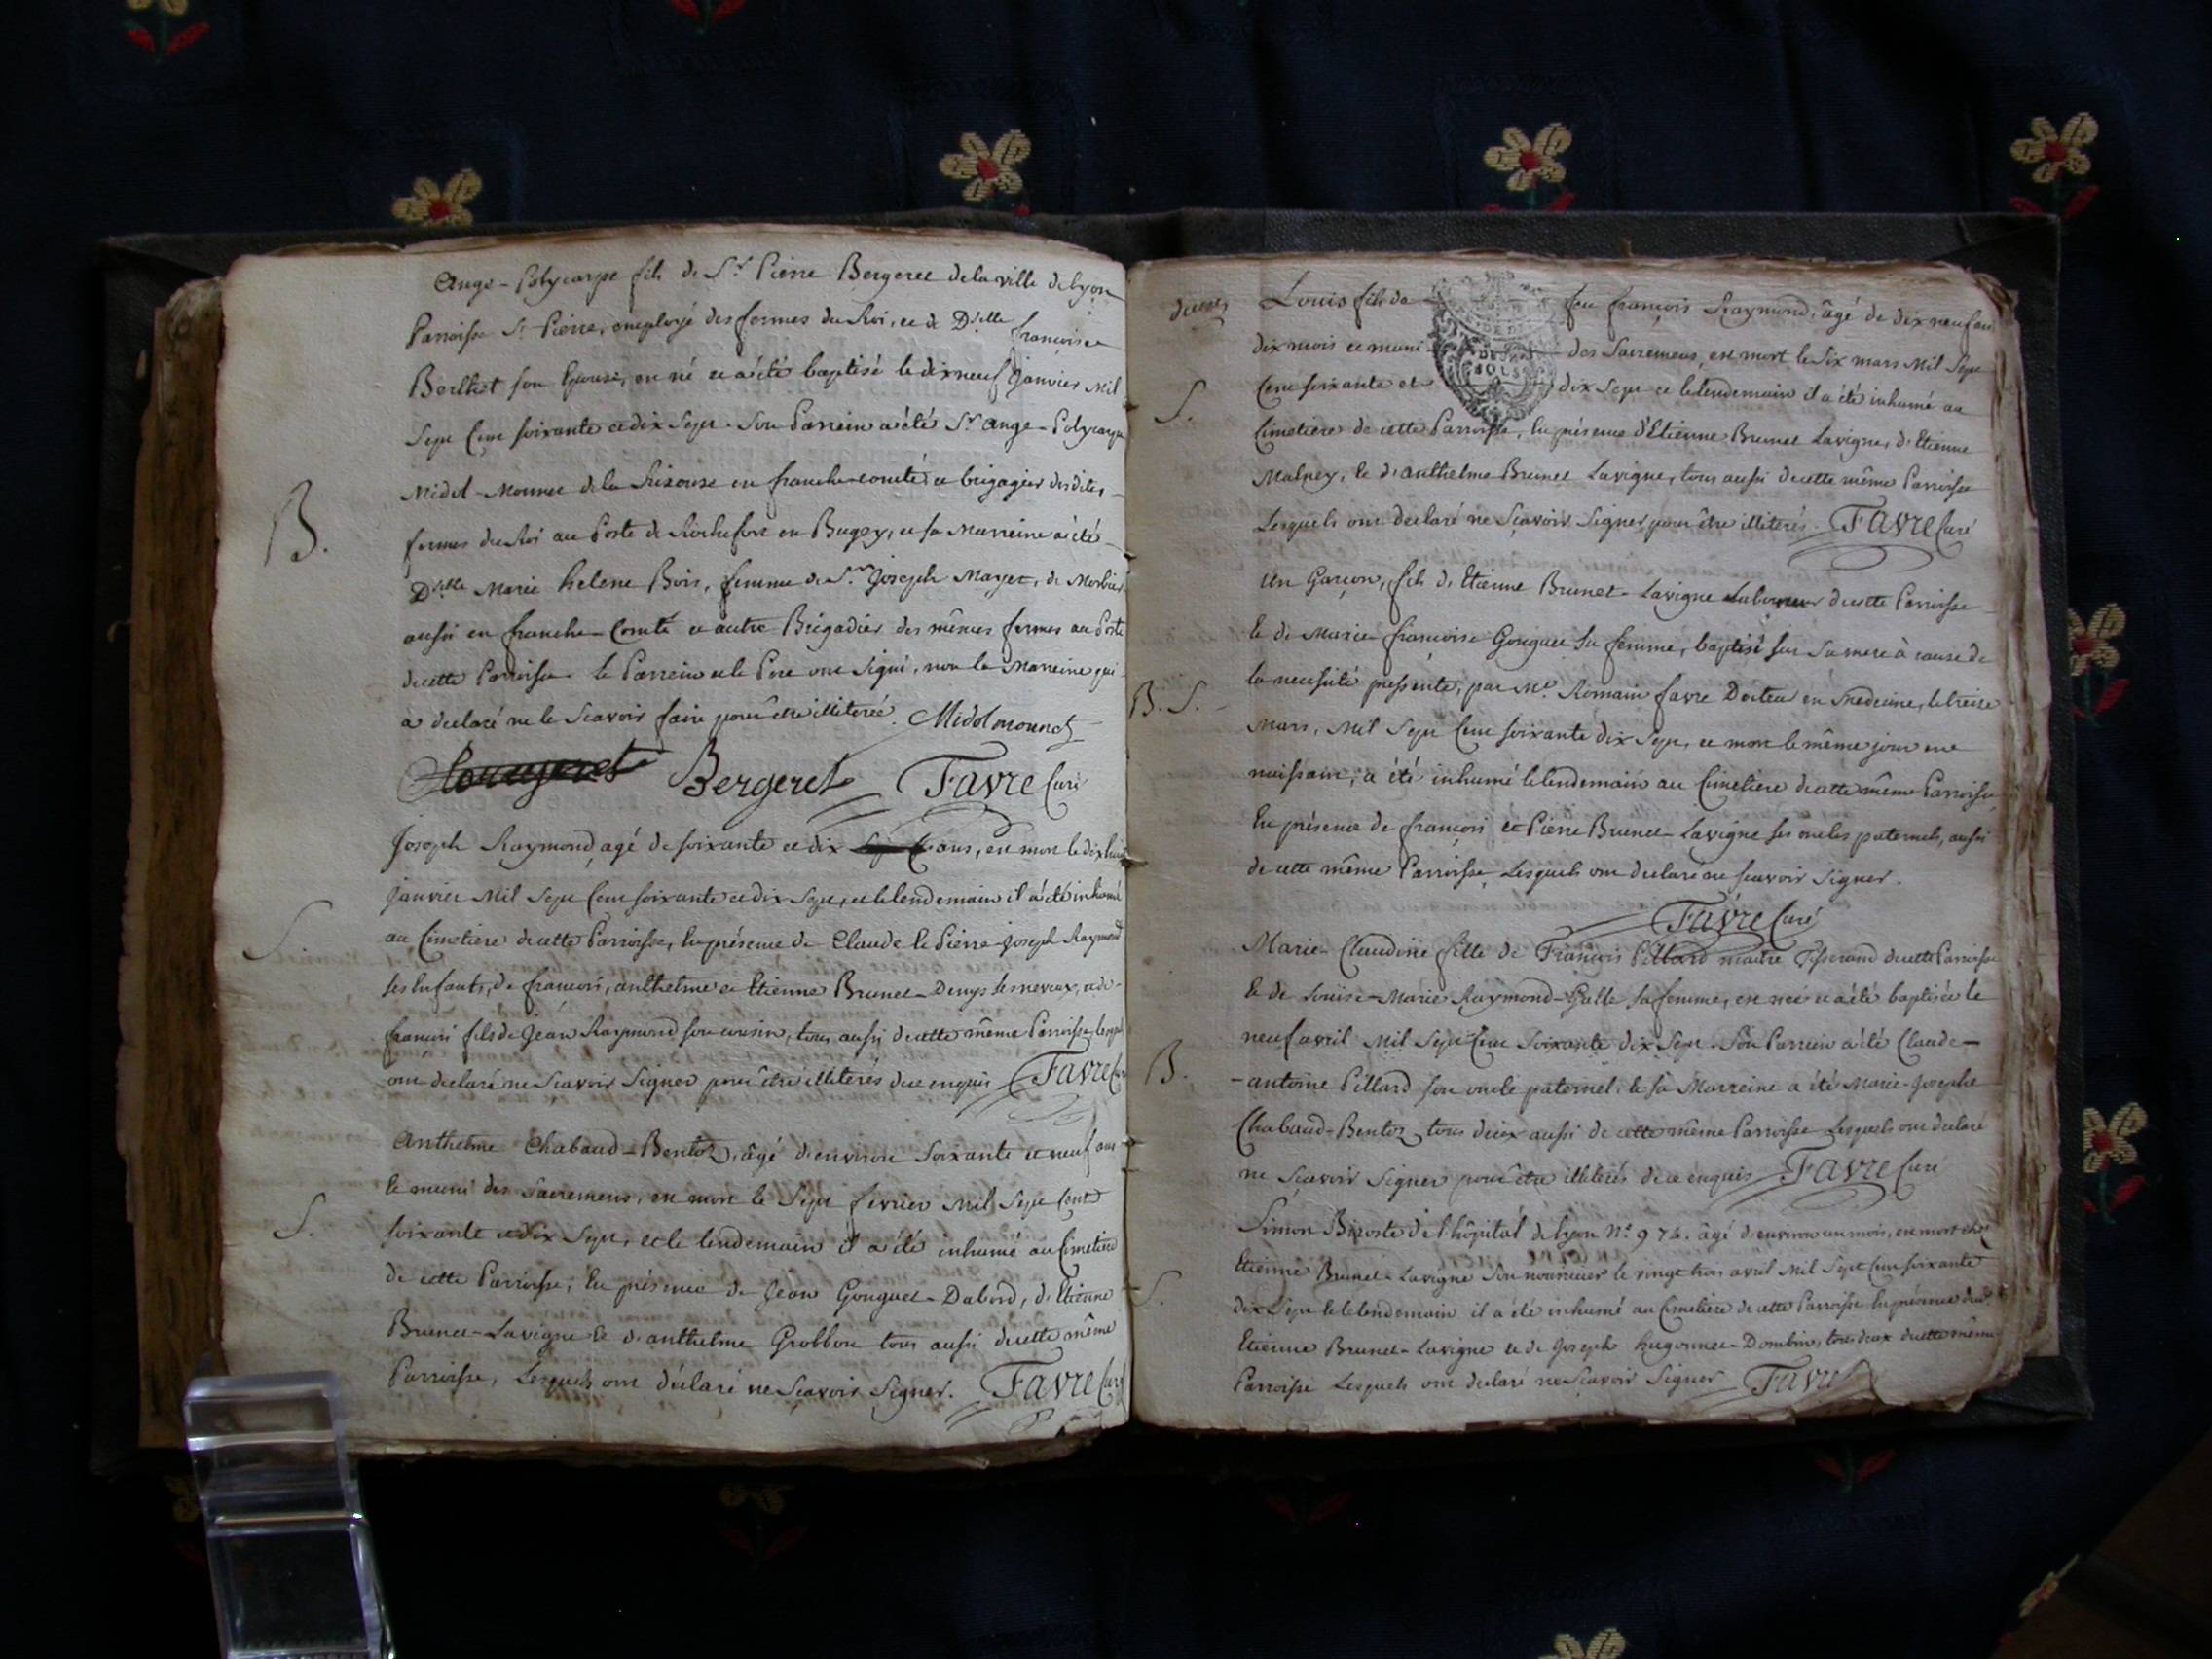 Ange-Polycarpe fils de S.r Pierre Bergeret de la ville de Lyon
Parroisse St Pierre, employé des fermes du Roi, et de D.elle françoise
Berthet son Epouse, est né et a été baptisé le dixneuf Janvier Mil
Sept Cent soixante et dix Sept. Son Parrein a été Sr ange-Polycarpe
Midol-Monnet de la Rixouse en franche-comté et brigagier desdites
fermes du Roi au Poste de Rochefort en Bugey, et sa Marreine a été
B.
D.elle Marie helene Bois, femme de S.r Joseph Mayet, de Morbier
aussi en franche-Comté et autre Brigadier des mêmes fermes au Poste
de cette Parroisse. le Parrein et le Pere ont signé, non la Marreine qui
a declaré ne le Scavoir faire pour être illiterée. Midolmonnet
Bergeret Favre Curé
Joseph Raymond, agé de soixante et dix ans, est mort le dix huit
Janvier Mil Sept Cent soixante et dix Sept, et le lendemain il a été inhumé
S.
au Cimetiere de cette Parroisse, En présence de Claude Et Pierre-Joseph Raymond
ses Enfants, de francois, anthelme et Etienne Brunet-Denys ses neveux, et de
francois fils de Jean Raymond son cousin, tous aussi de cette même Parroisse, lesquels
ont declaré ne Scavoir Signer pour être illiterés de ce enquis Favre Curé
Anthelme Chabaud-Bentoz, âgé d'environ Soixante et neuf ans
Et muni des Sacremens, est mort le Sept fevrier Mil Sept Cent
S.
soixante et dix Sept, et le lendemain il a été inhumé au Cimetiere
de cette Parroisse, En présence de Jean Gonguet-Dabord, d'Etienne
Brunet-Lavigne Et d'anthelme Grobbon tous aussi de cette même
Parroisse, Lesquels ont déclaré ne Scavoir Signer. Favre Curé
Louis fils de feu françois Raymond, âgé de dix neuf ans
dix mois et muni des Sacremens, est mort le Six mars Mil Sept
S.
Cent soixante et dix Sept et le lendemain il a été inhumé au
Cimetiere de cette Parroisse, En présence d'Etienne Brunet Lavigne, d'Etienne
Malpey, Et d'anthelme Brunet Lavigne, tous aussi de cette même Parroisse
Lesquels ont declaré ne Sçavoir Signer pour être illiterés. Favre Curé
Un Garçon, fils d'Etienne Brunet-Lavigne Laboureur de cette Parroisse
Et de Marie françoise Gonguet sa femme, baptisé sur sa mere à cause de
la necessité pressente, par Mr. Romain favre Docteur en Medecine, le treize
B. S.
Mars, Mil Sept Cent soixante dix Sept, et mort le même jour en
naissant, a été inhumé le lendemain au Cimetiere de cette même Parroisse
En présence de françois et Pierre Brunet-Lavigne ses oncles paternels, aussi
de cette même Parroisse, Lesquels ont declaré ne scavoir Signer.
Favre Curé
Marie-Claudine fille de François Pillard maitre Tisserand de cette Parroisse
Et de Louise-Marie Raymond-Galle sa femme, est née et a été baptisée le
neuf avril Mil Sept Cent Soixante dix Sept. Son Parrein a été Claude-
B.
-antoine Pillard son oncle paternel, Et sa Marreine a été Marie-Josephe
Chabaud-Bentoz, tous deux aussi de cette même Parroisse Lesquels ont declaré
ne Sçavoir Signer pour être illiterés de ce enquis Favre Curé
Simon de l'hôpital de Lyon N.o 974. âgé d'environ un mois, est mort chez
Etienne Brunet-Lavigne Son nourricier le vingt trois avril Mil Sept Cent soixante
S.
dix Sept Et le lendemain il a été inhumé au Cimetiere de cette Parroisse En présence dud.t
Etienne Brunet-Lavigne et de Joseph hugonnet-Dombin, tous deux de cette même
Parroisse Lesquels ont declaré ne Scavoir Signer Favre